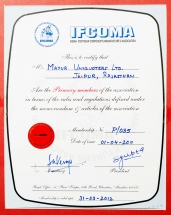 IFCOMA
This is to certify that
M/s. MAYUR UNIQUOTERS LTD.
JAIPUR, RAJASTHAN
Are the Primary members of the association
in terms of the rules and regulations defined under
the memorandum & articles of the association
Membership No. P/035
Date of issue 01-04-2011
Secretary
President
Valid upto 31-03-2012